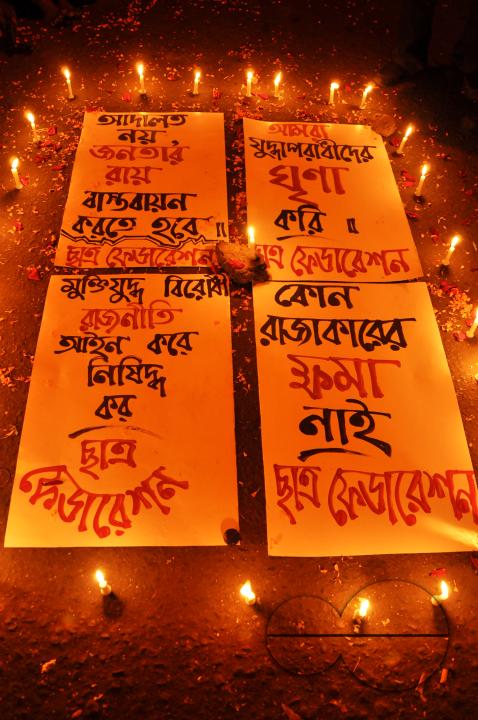 আদালত
নয়,
জনতার
রায়
বাস্তবায়ন
করতে হবে ॥
ছাত্র ফেডারেশন
আমরা
যুদ্ধাপরাধীদের
ঘৃণা
করি ॥
ছাত্র ফেডারেশন
মুক্তিযুদ্ধ বিরোধী
রাজনীতি
আইন করে
নিষিদ্ধ
কর
ছাত্র
ফেডারেশন
কোন
রাজাকারের
ক্ষমা
নাই
ছাত্র ফেডারেশন